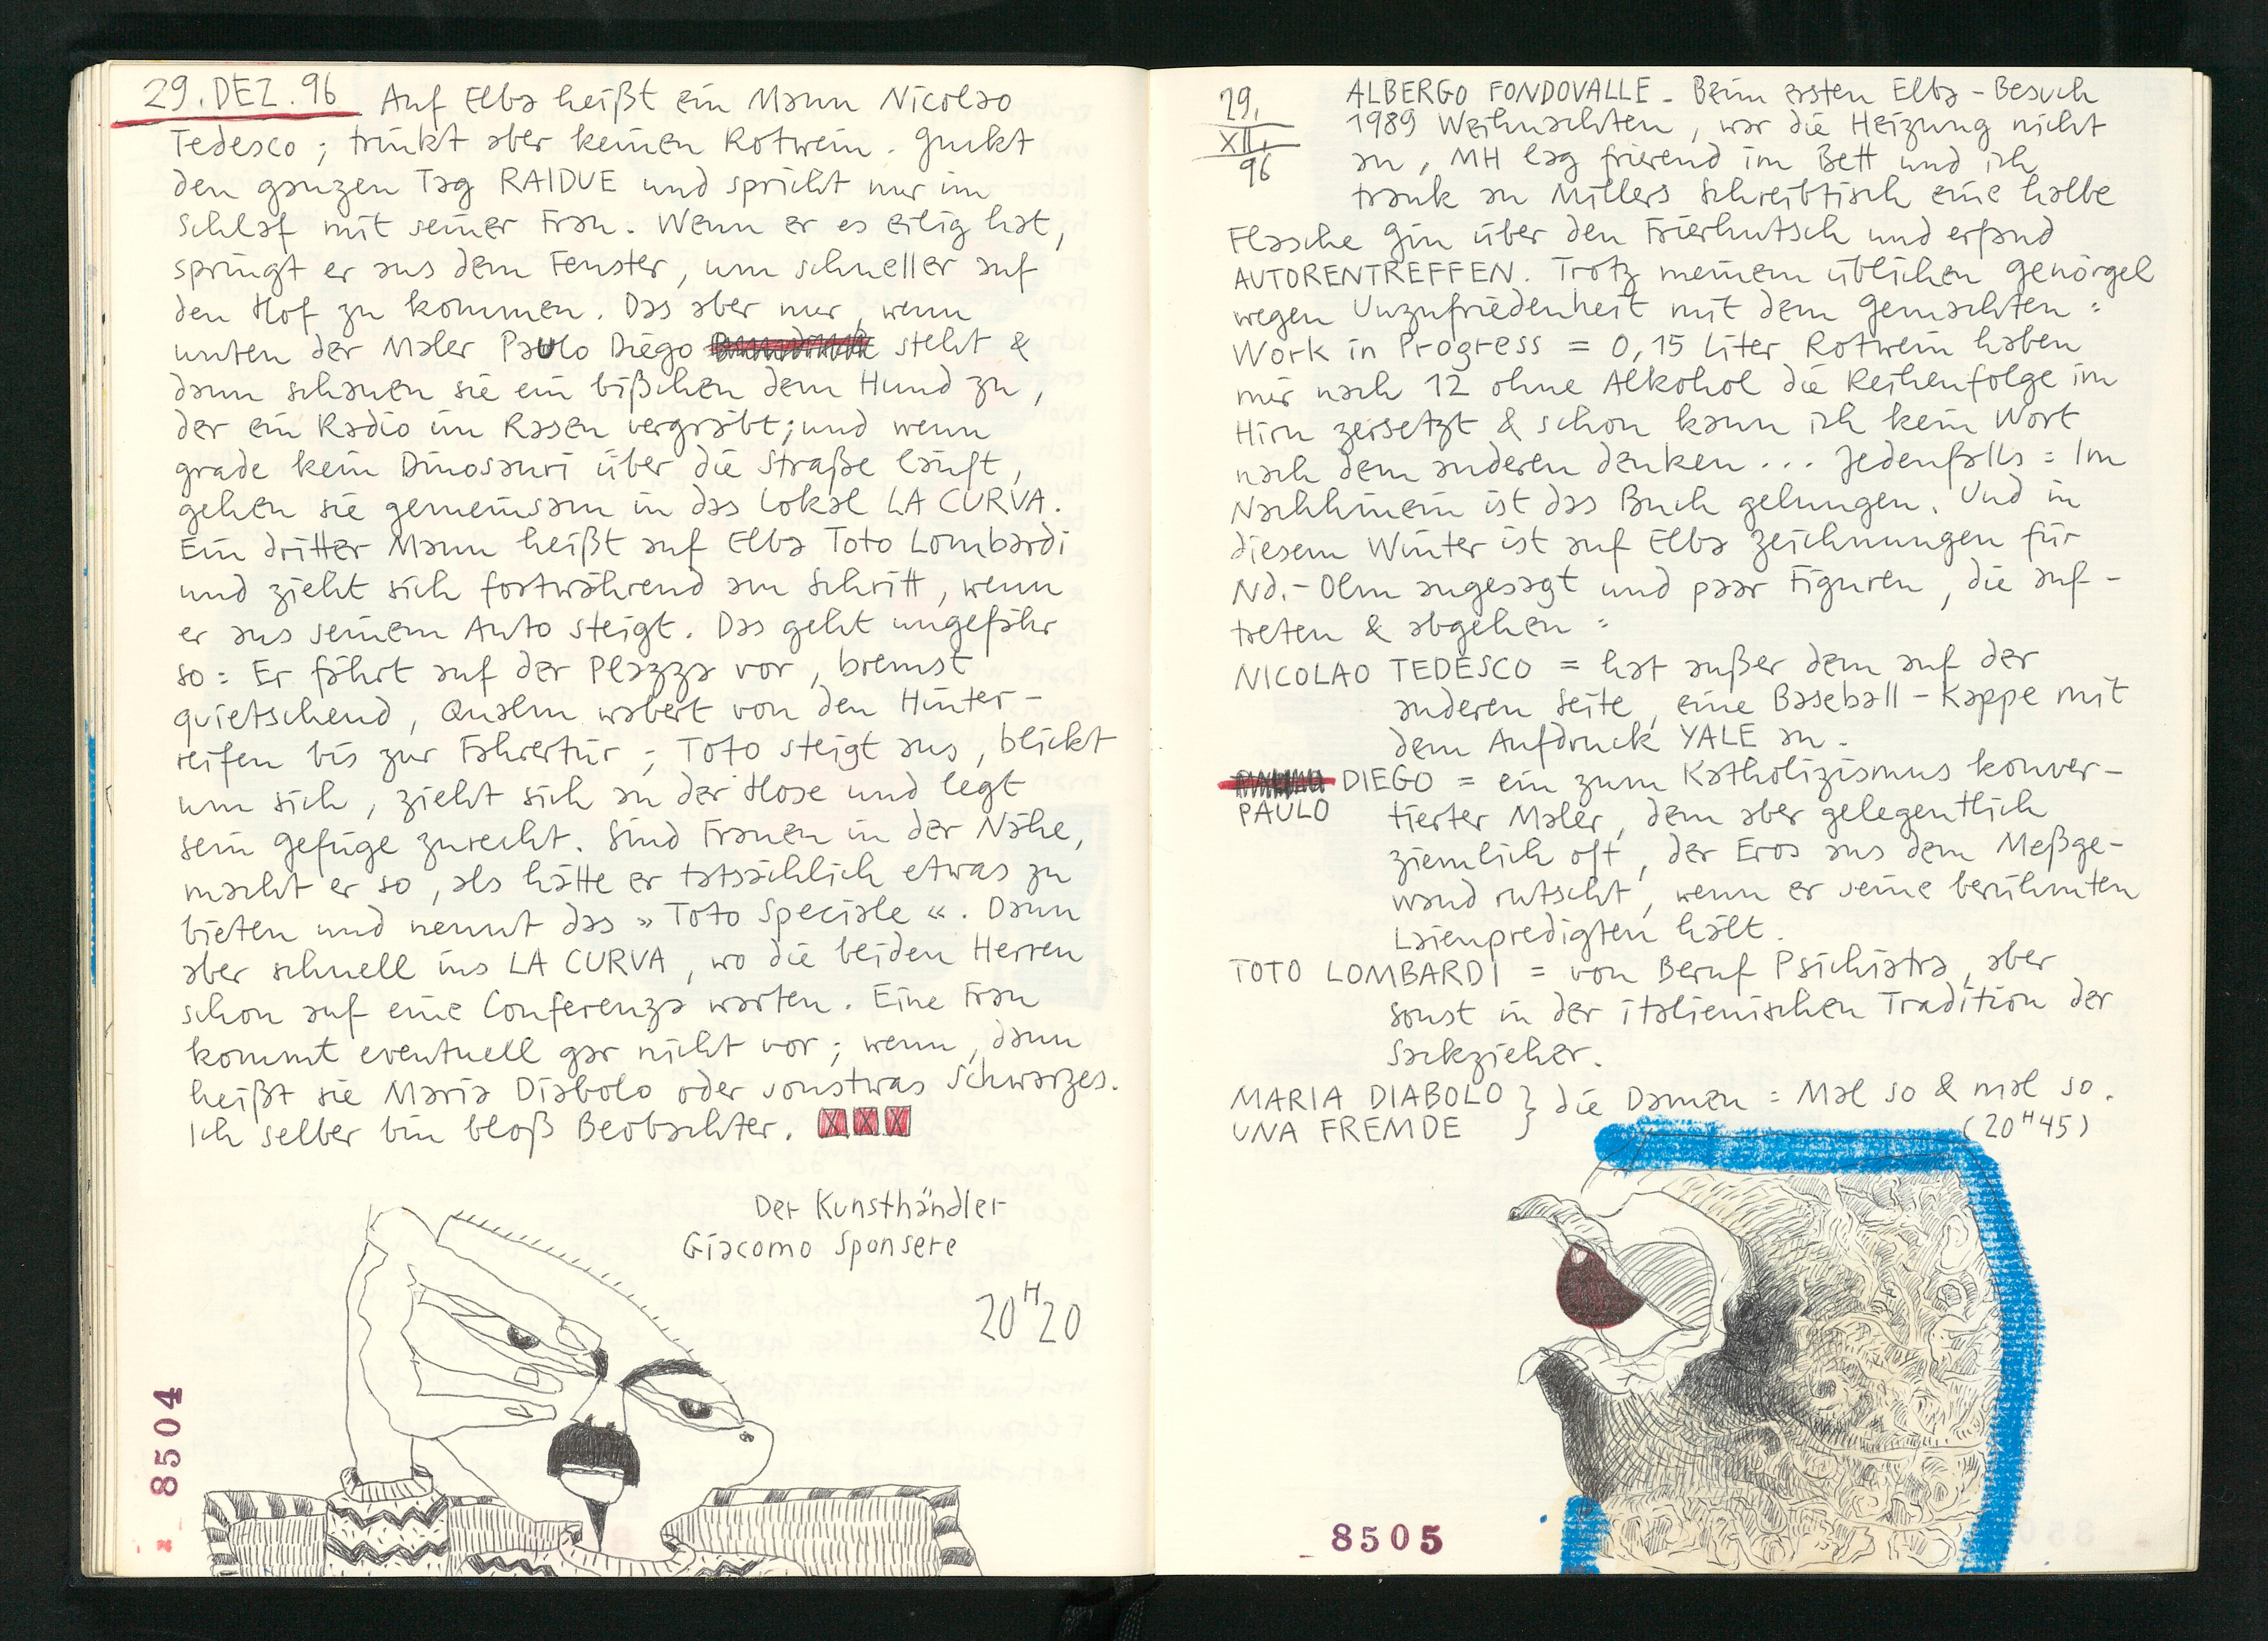 29. DEZ. 96 Auf Elba heißt ein Mann Nicolao
Tedesco; trinkt aber keinen Rotwein. Guckt
den ganzen Tag RAIDUE und spricht nur im
Schlaf mit seiner Frau. Wenn er es eilig hat,
springt er aus dem Fenster, um schneller auf
den Hof zu kommen. Das aber nur, wenn
unten der Maler Paulo Diego steht &
dann schauen sie ein bißchen dem Hund zu,
der ein Radio im Rasen vergräbt; und wenn
grade kein Dinosauri über die Straße läuft,
gehen sie gemeinsam in das Lokal LA CURVA.
Ein dritter Mann heißt auf Elba Toto Lombardi
und zieht sich fortwährend am Schritt, wenn
er aus seinem Auto steigt. Das geht ungefähr
so: Er fährt auf der Plazza vor, bremst
quietschend, Qualm wabert von den Hinter-
reifen bis zur Fahrertür; Toto steigt aus, blickt
um sich, zieht sich an der Hose und legt
sein Gefüge zurecht. Sind Frauen in der Nähe,
macht er so, als hätte er tatsächlich etwas zu
bieten und nennt das »Toto Speciale«. Dann
aber schnell ins LA CURVA, wo die beiden Herren
schon auf eine Conferenza warten. Eine Frau
kommt eventuell gar nicht vor; wenn, dann
heißt sie Maria Diabolo oder sonstwas Schwarzes.
Ich selber bin bloß Beobachter. XXX
Der Kunsthändler
Giacomo Sponsere
20H20
8504
29.
XII.
96
ALBERGO FONDOVALLE - Beim ersten Elba-Besuch
1989 Weihnachten, war die Heizung nicht
an, MH lag frierend im Bett und ich
trank an Millers Schreibtisch eine halbe
Flasche Gin über den Frierhutsch und erfand
AUTORENTREFFEN. Trotz meinem üblichen Genörgel
wegen Unzufriedenheit mit dem Gemachten:
Work in Progress = 0,15 Liter Rotwein haben
mir nach 12 ohne Alkohol die Reihenfolge im
Hirn zersetzt & schon kann ich kein Wort
nach dem anderen denken... Jedenfalls: Im
Nachhinein ist das Buch gelungen. Und in
diesem Winter ist auf Elba Zeichnungen für
Nd.-Olm angesagt und paar Figuren, die auf-
treten & abgehen:
NICOLAO TEDESCO = hat außer dem auf der
anderen Seite, eine Baseball-Kappe mit
dem Aufdruck YALE an.
DIEGO = ein zum Katholizismus konver-
PAULO tierter Maler, dem aber gelegentlich
ziemlich oft, der Eros aus dem Meßge-
wand rutscht, wenn er seine berühmten
Laienpredigten hält.
TOTO LOMBARDI = von Beruf Psichiatra, aber
sonst in der italienischen Tradition der
Sackzieher.
MARIA DIABOLO } die Damen: Mal so & mal so.
UNA FREMDE } (20H45)
8505